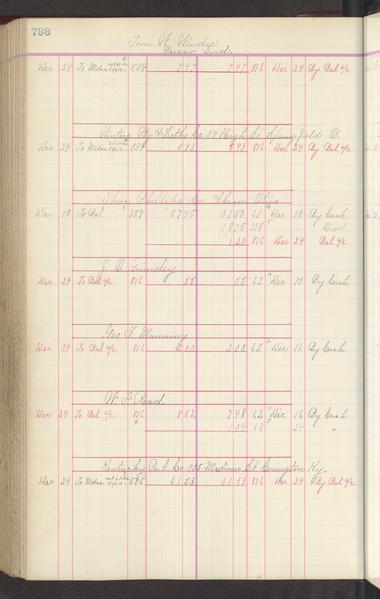 798
Tom W.
Ind.
Dec 24 To Mdse 584 7 47 7 47 816 Dec 24 By Bal a/c
Ptg & Litho Co 54 High St Springfield O.
Dec 24 To Mdse 584 5 93 5 93 816 Dec 24 By Bal a/c
Phillips Co Ohio
Dec 10 To Bal 757 57 45 37 50 61 Dec 10 By Cash
18 75 228 " Disct
1 20 816 Dec 24 Bal a/c
J. D.
Dec 24 To Bal a/c 816 55 55 62 Dec 15 By Cash
Geo T. Manning
Dec 24 To Bal a/c 816 2 00 2 00 62 Dec 16 By Cash
W. F. Read
Dec 24 To Bal a/c 816 8 52 7 48 62 Dec 16 By Cash
1 04 63 24 "
Kentucky Co. 505 Madison St Covington Ky.
Dec 24 To Mdse 585 31 53 31 53 816 Dec 24 By Bal a/c